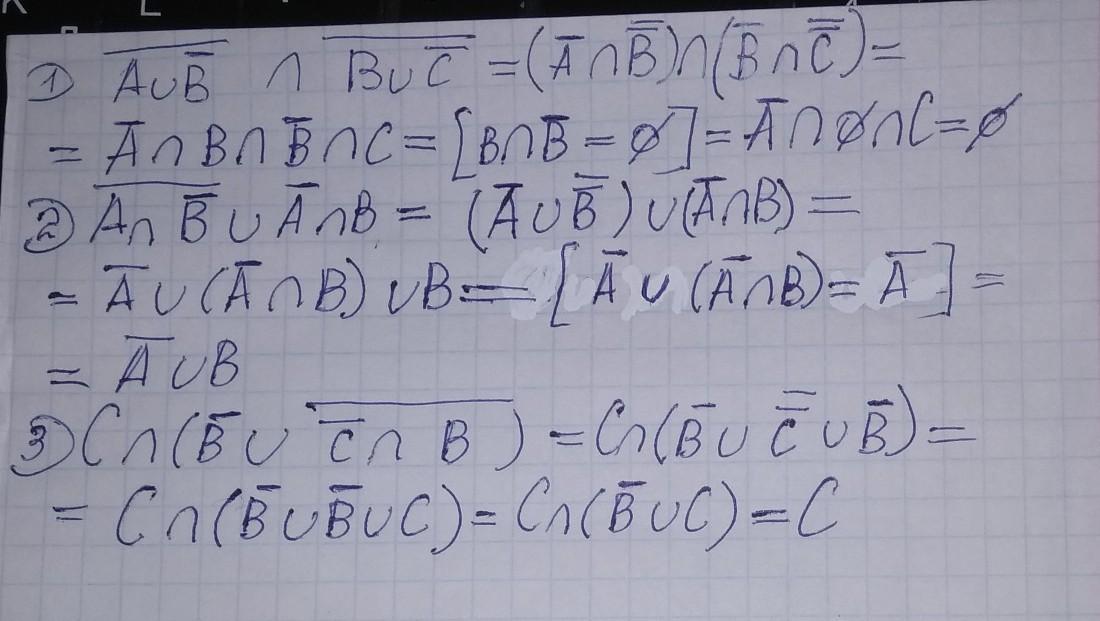 1) \overline{A∪\overline{B}} ∩ \overline{B∪\overline{C}} = (\overline{A}∩\overline{\overline{B}})∩(\overline{B}∩\overline{\overline{C}}) =
= \overline{A}∩B∩\overline{B}∩C = [B∩\overline{B} = ∅] = \overline{A}∩∅∩C = ∅
2) \overline{A∩\overline{B}} ∪ \overline{A}∩B = (\overline{A}∪\overline{\overline{B}})∪(\overline{A}∩B) =
= \overline{A}∪(\overline{A}∩B)∪B = [\overline{A}∪(\overline{A}∩B) = \overline{A}] =
= \overline{A}∪B
3) C∩(\overline{B}∪\overline{\overline{C}∩B}) = C∩(\overline{B}∪\overline{\overline{C}}∪\overline{B}) =
= C∩(\overline{B}∪\overline{B}∪C) = C∩(\overline{B}∪C) = C